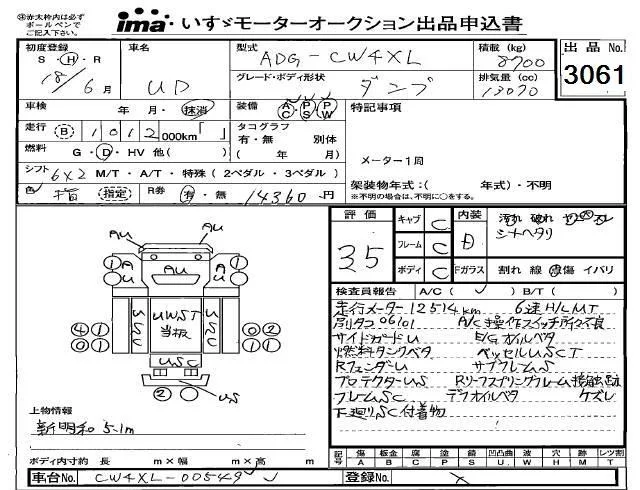 ※赤太枠内は必ず
ボールペンで
ご記入下さい。
ima いすゞモーターオークション出品申込書
初度登録 車名 型式 ADG-CW4XL 積載(kg) 8700 出品No.
S・H・R 18/6月 UD グレード・ボディ形状 ダンプ 排気量(cc) 13070 3061
車検 年 月・抹消 装備 A/C P/S P/W 特記事項
走行 (B) 1012 000km「 」 タコグラフ 有・無 別体
燃料 G・D・HV 他( ) ( 年 月) メーター1周
シフト 6×2 M/T・A/T・特殊(2ペダル・3ペダル) 架装物年式:( 年式)・不明
色 指 (指定) R券 有・無 14360円 ※不明の場合は、不明に○をする。
評価 35 キャブ C 内装 D 汚れ 破れ
フレーム C シートヘタリ
ボディ C Fガラス 割れ 線 点傷 イバリ
AU
AU
① A U ① A U
AU
④ ① USC UWST 当板 USC ① ②
USC
② US
検査員報告 A/C( ) B/T( )
走行メーター12514km 6速H/LMT
A/C操作スイッチアイス不良
サイドガードU E/Gオイルベタ
燃料タンクベタ ベッセルUSCT
RフェンダーU サブフレームS
プロテクターUS Rリーフスプリングフレーム接触跡
フレームSC デフオイルベタ ケズレ
下廻りSC付着物
上物情報
新明和 5.1m
ボディ内寸約 長 m×幅 m×高 m
記号 傷 板金 腐 塗 錆 凹凸曲 波 穴 跡 レツ割
A B C P S U W H M T
車台No. CW4XL-00549 登録No.